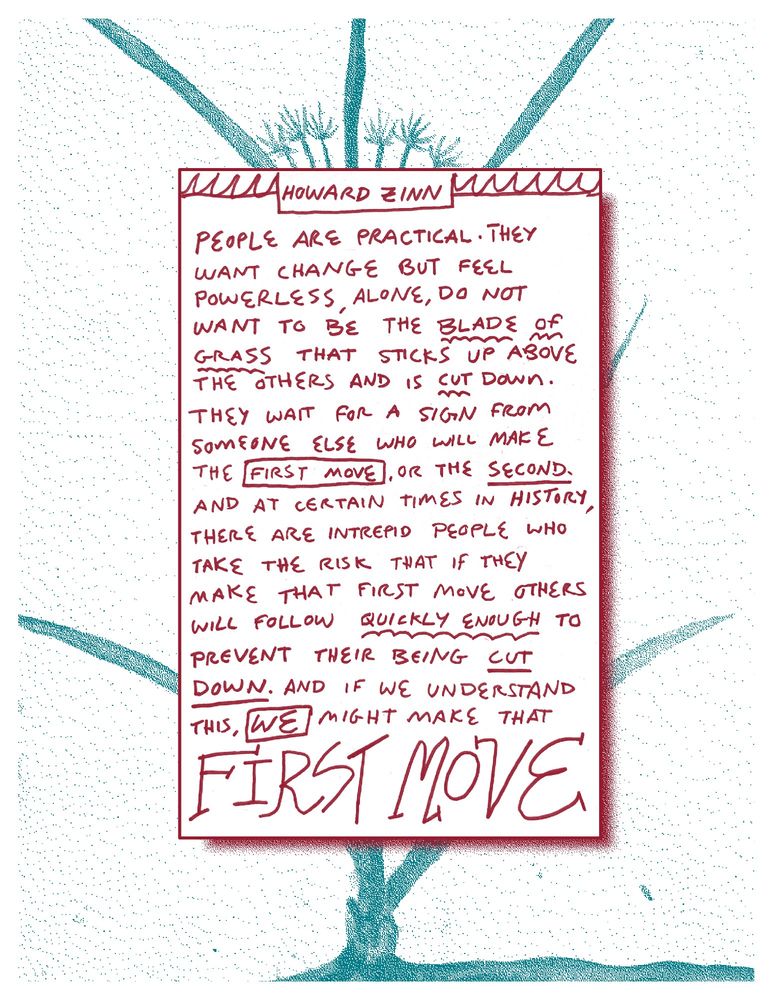 HOWARD ZINN
PEOPLE ARE PRACTICAL. THEY
WANT CHANGE BUT FEEL
POWERLESS, ALONE, DO NOT
WANT TO BE THE BLADE OF
GRASS THAT STICKS UP ABOVE
THE OTHERS AND IS CUT DOWN.
THEY WAIT FOR A SIGN FROM
SOMEONE ELSE WHO WILL MAKE
THE FIRST MOVE, OR THE SECOND.
AND AT CERTAIN TIMES IN HISTORY,
THERE ARE INTREPID PEOPLE WHO
TAKE THE RISK THAT IF THEY
MAKE THAT FIRST MOVE OTHERS
WILL FOLLOW QUICKLY ENOUGH TO
PREVENT THEIR BEING CUT
DOWN. AND IF WE UNDERSTAND
THIS, WE MIGHT MAKE THAT
FIRST MOVE